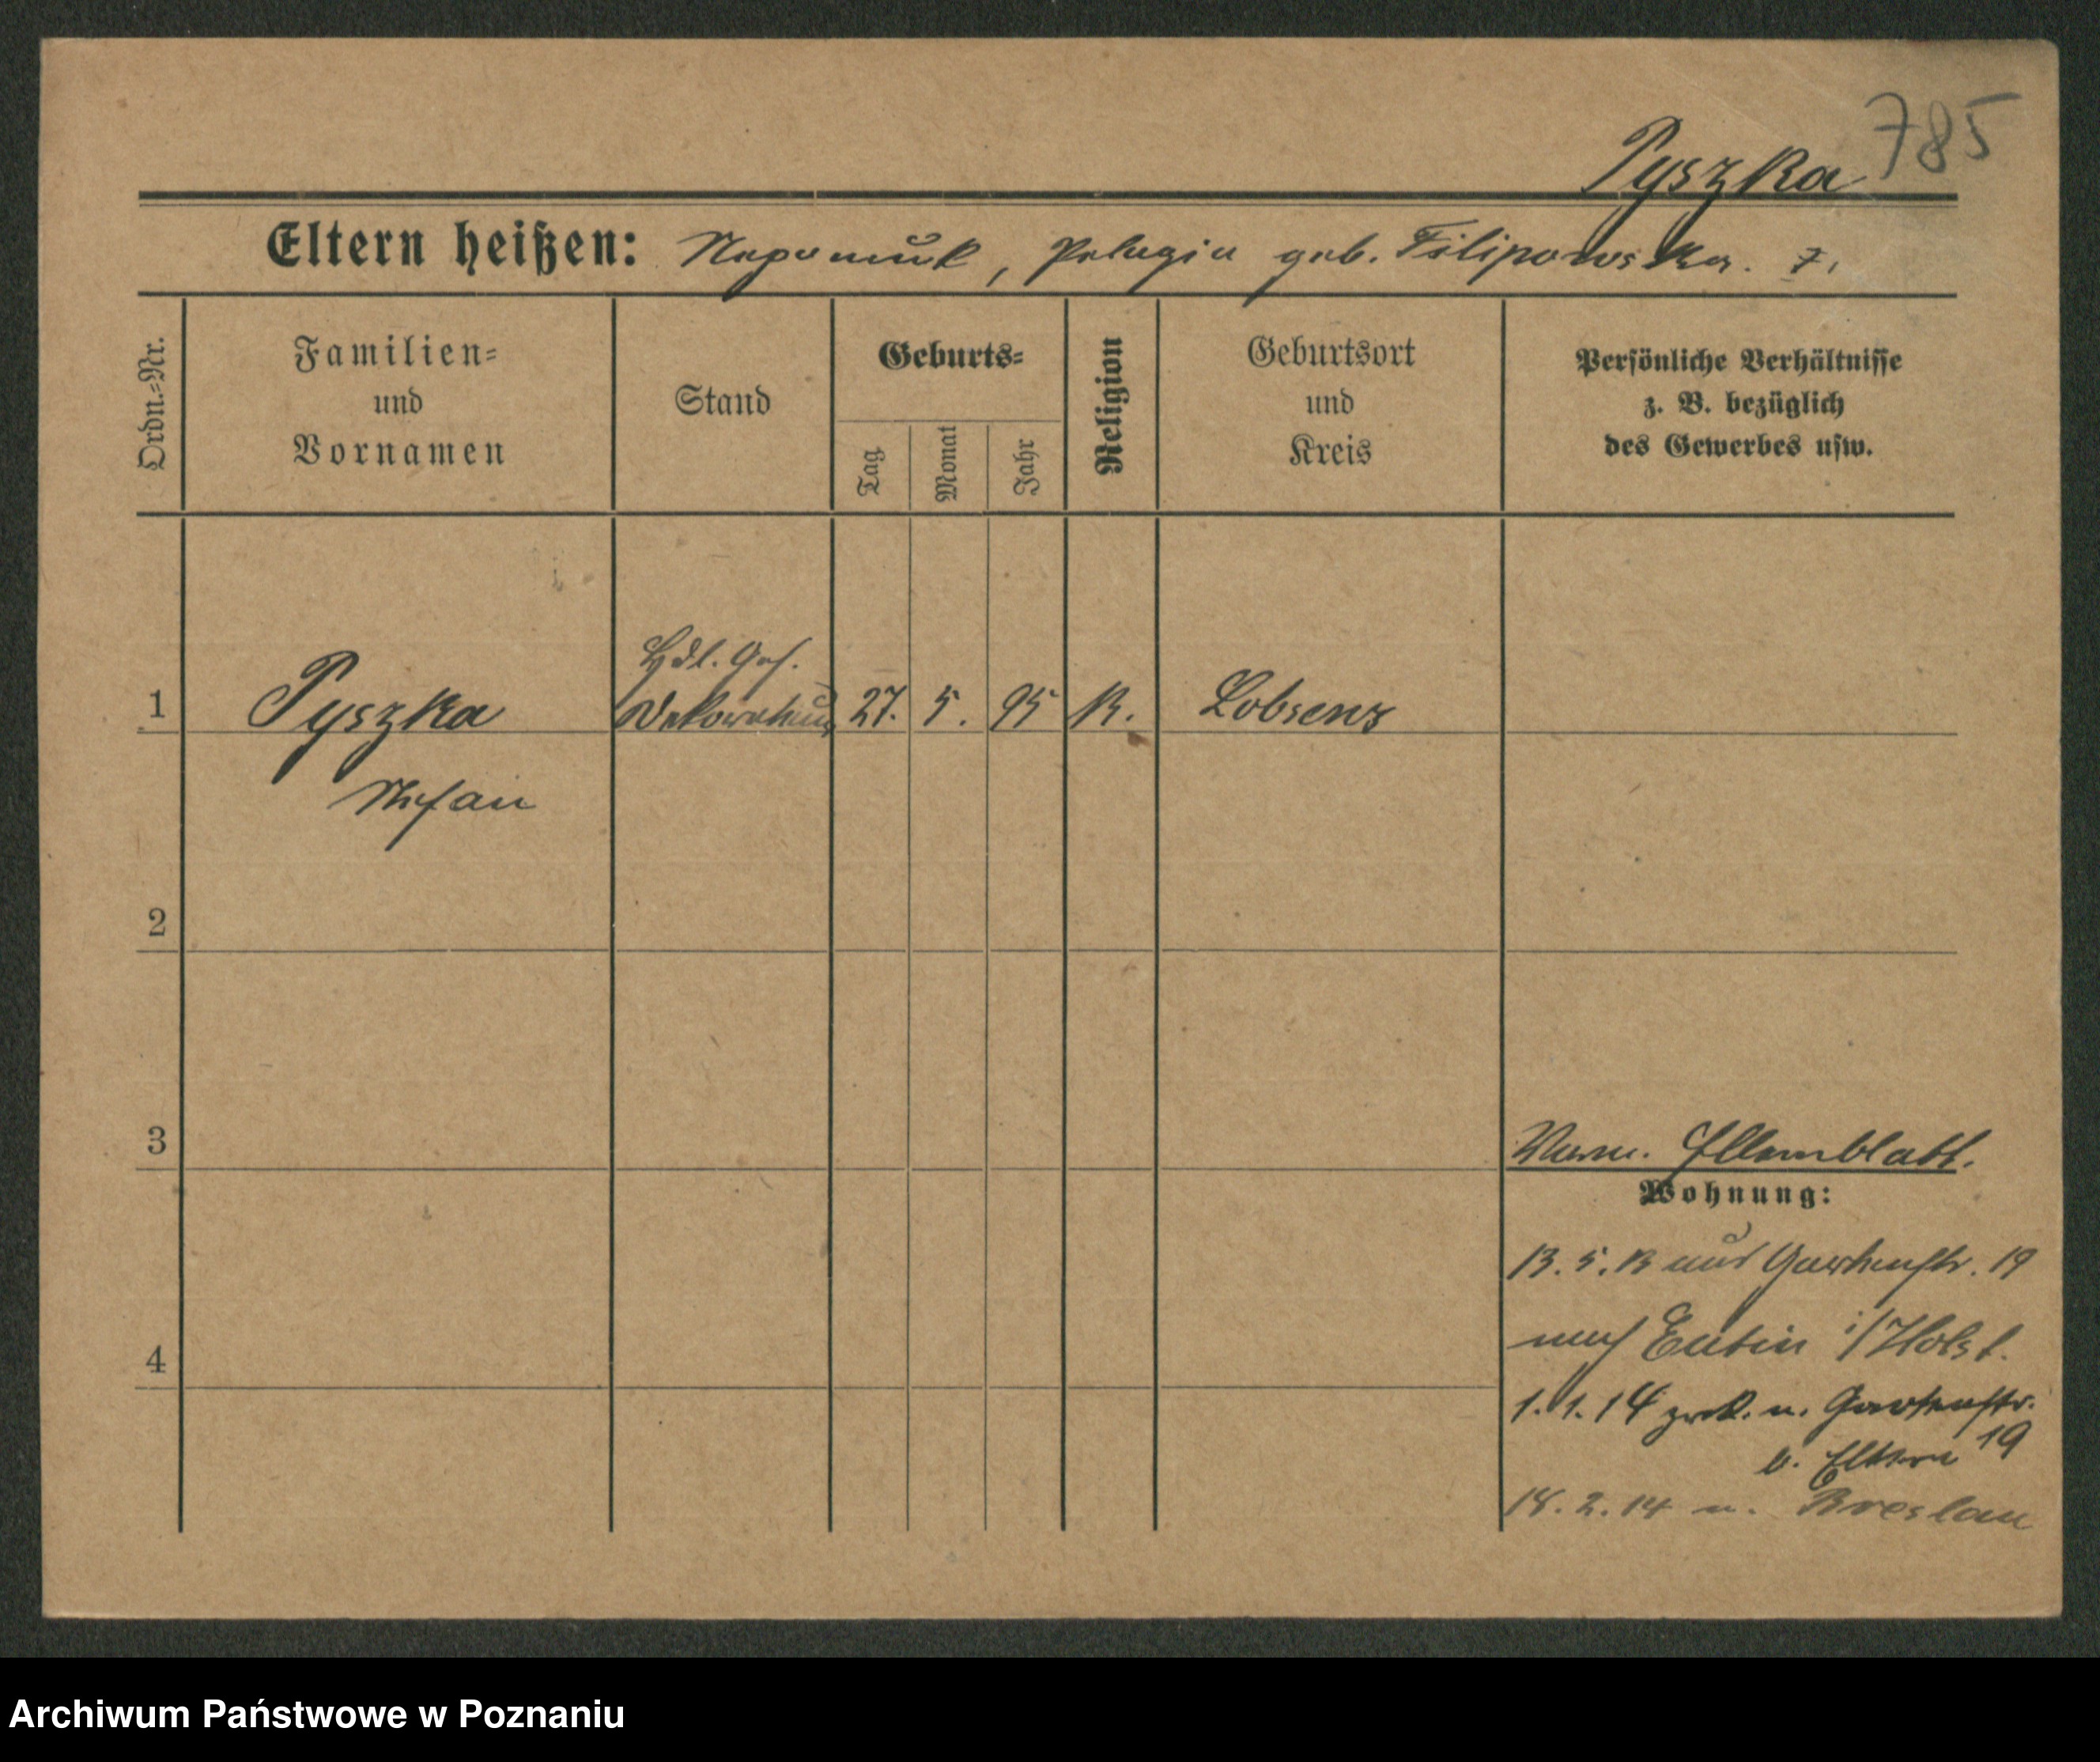 785
Pyszka
Eltern heißen: Nepomuk, Pelagia geb. Filipowska.
Ordn.=Nr.
Familien=
und
Vornamen
Stand
Geburts=
Tag
Monat
Jahr
Religion
Geburtsort
und
Kreis
Persönliche Verhältnisse
z. B. bezüglich
des Gewerbes usw.
Hdl. Geh.
1 Pyszka Dekorateur 27. 5. 95 K. Lobsens
Stefan
2
3
Elternblatt.
Wohnung:
13. 5. 13 aus Gartenstr. 19
nach Eutin i/Holst.
4
1.1.14 zrck. n. Gartenstr.
b. Eltern 19
18. 2. 14 n. Breslau
Archiwum Państwowe w Poznaniu